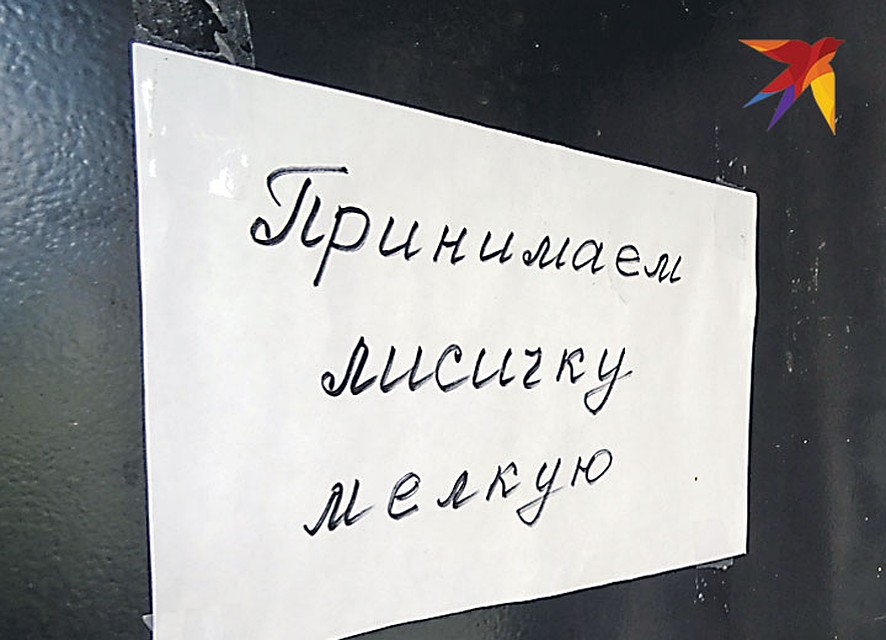 Принимаем
лисичку
мелкую